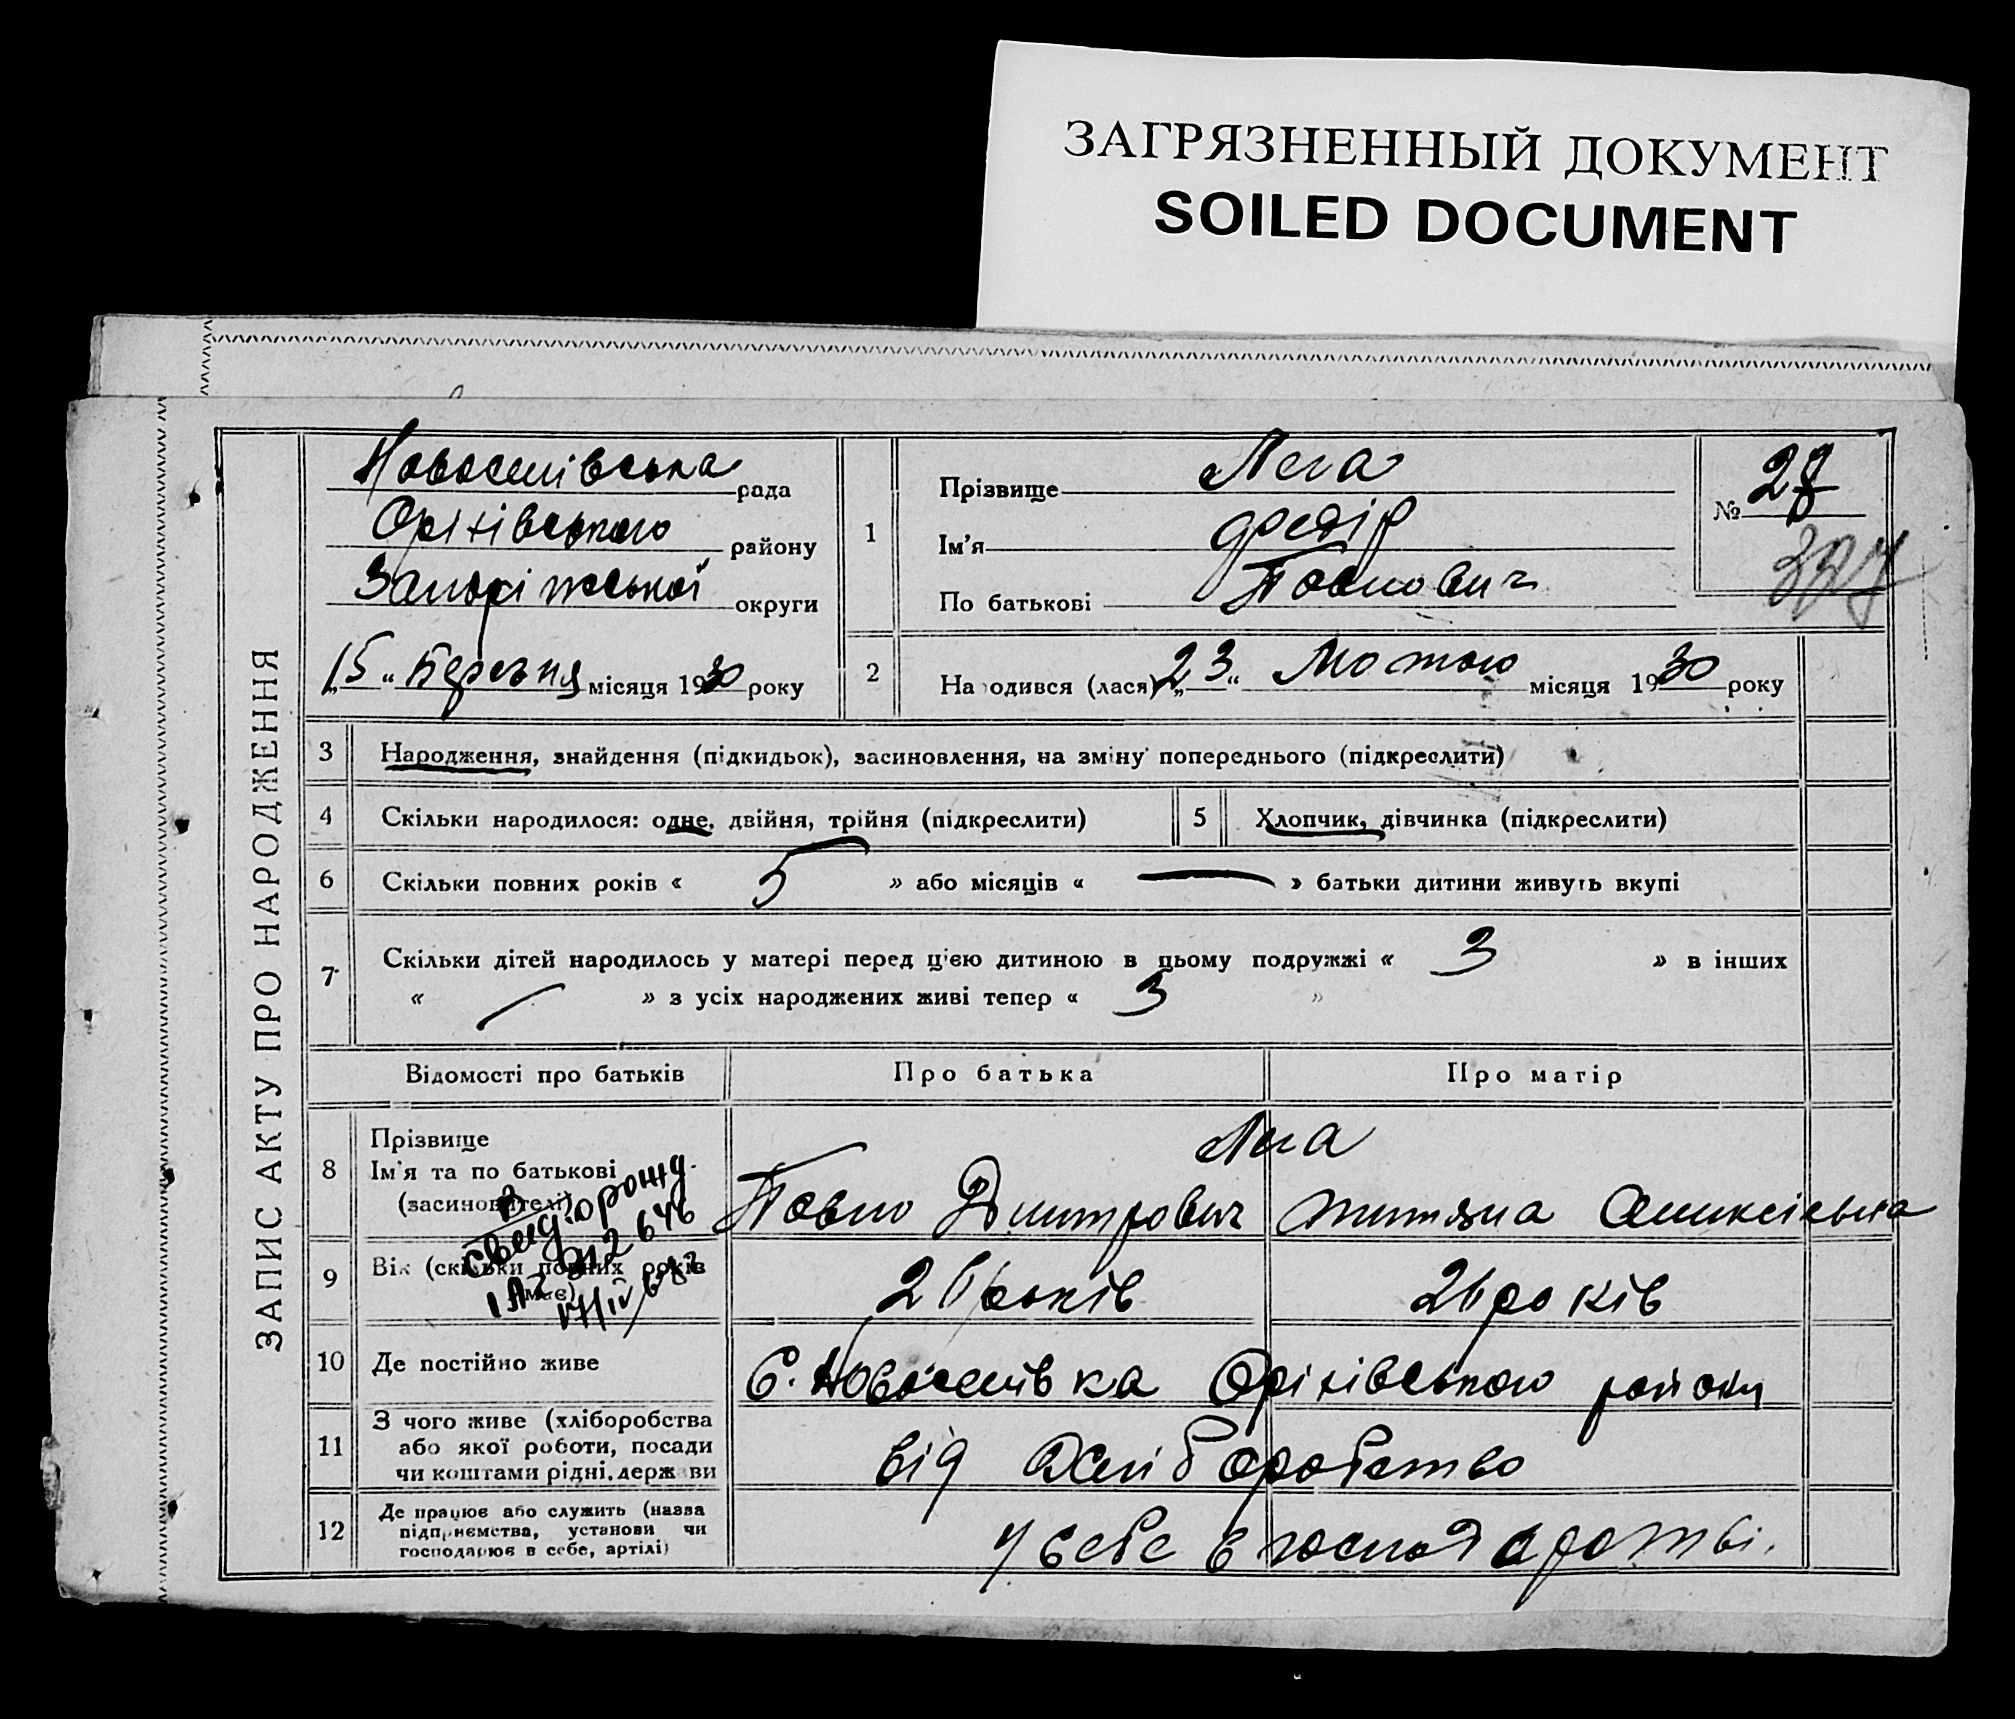 ЗАГРЯЗНЕННЫЙ ДОКУМЕНТ
SOILED DOCUMENT
ЗАПИС АКТУ ПРО НАРОДЖЕННЯ
Новоселівська рада
Оріхівського району
Запоріжської округи
„15“ Березня місяця 1930 року
1
Прізвище Лега
Ім'я Федір
По батькові Павлович
№ 28
2 Народився (лася) „23“ Лютого місяця 1930 року
3 Народження, знайдення (підкидьок), засиновлення, на зміну попереднього (підкреслити)
4 Скільки народилося: одне, двійня, трійня (підкреслити) 5 Хлопчик, дівчинка (підкреслити)
6 Скільки повних років « 5 » або місяців « — » батьки дитини живуть вкупі
7 Скільки дітей народилось у матері перед цією дитиною в цьому подружжі « 3 » в інших
« — » з усіх народжених живі тепер « 3 »
Відомості про батьків Про батька Про матір
8 Прізвище
Ім'я та по батькові
(засиновителі)
Лега
Павло Дмитрович Титяна Оликсієвна
9 Вік (скільки повних років
має)
26 років 26 років
10 Де постійно живе С. Новоселівка Оріхівського району
11 З чого живе (хліборобства
або якої роботи, посади
чи коштами рідні, держави
від Хліборобства
12 Де працює або служить (назва
підприємства, установи чи
господарює в себе, артілі)
у себе в господаротві.